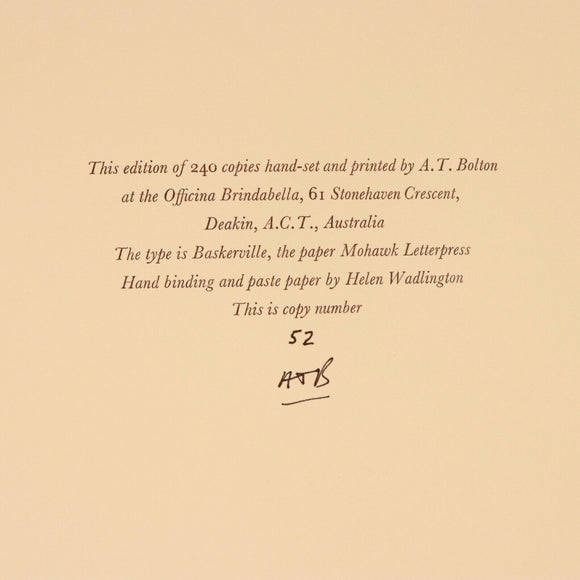 This edition of 240 copies hand-set and printed by A.T. Bolton
at the Officina Brindabella, 61 Stonehaven Crescent,
Deakin, A.C.T., Australia
The type is Baskerville, the paper Mohawk Letterpress
Hand binding and paste paper by Helen Wadlington
This is copy number
52
ATB